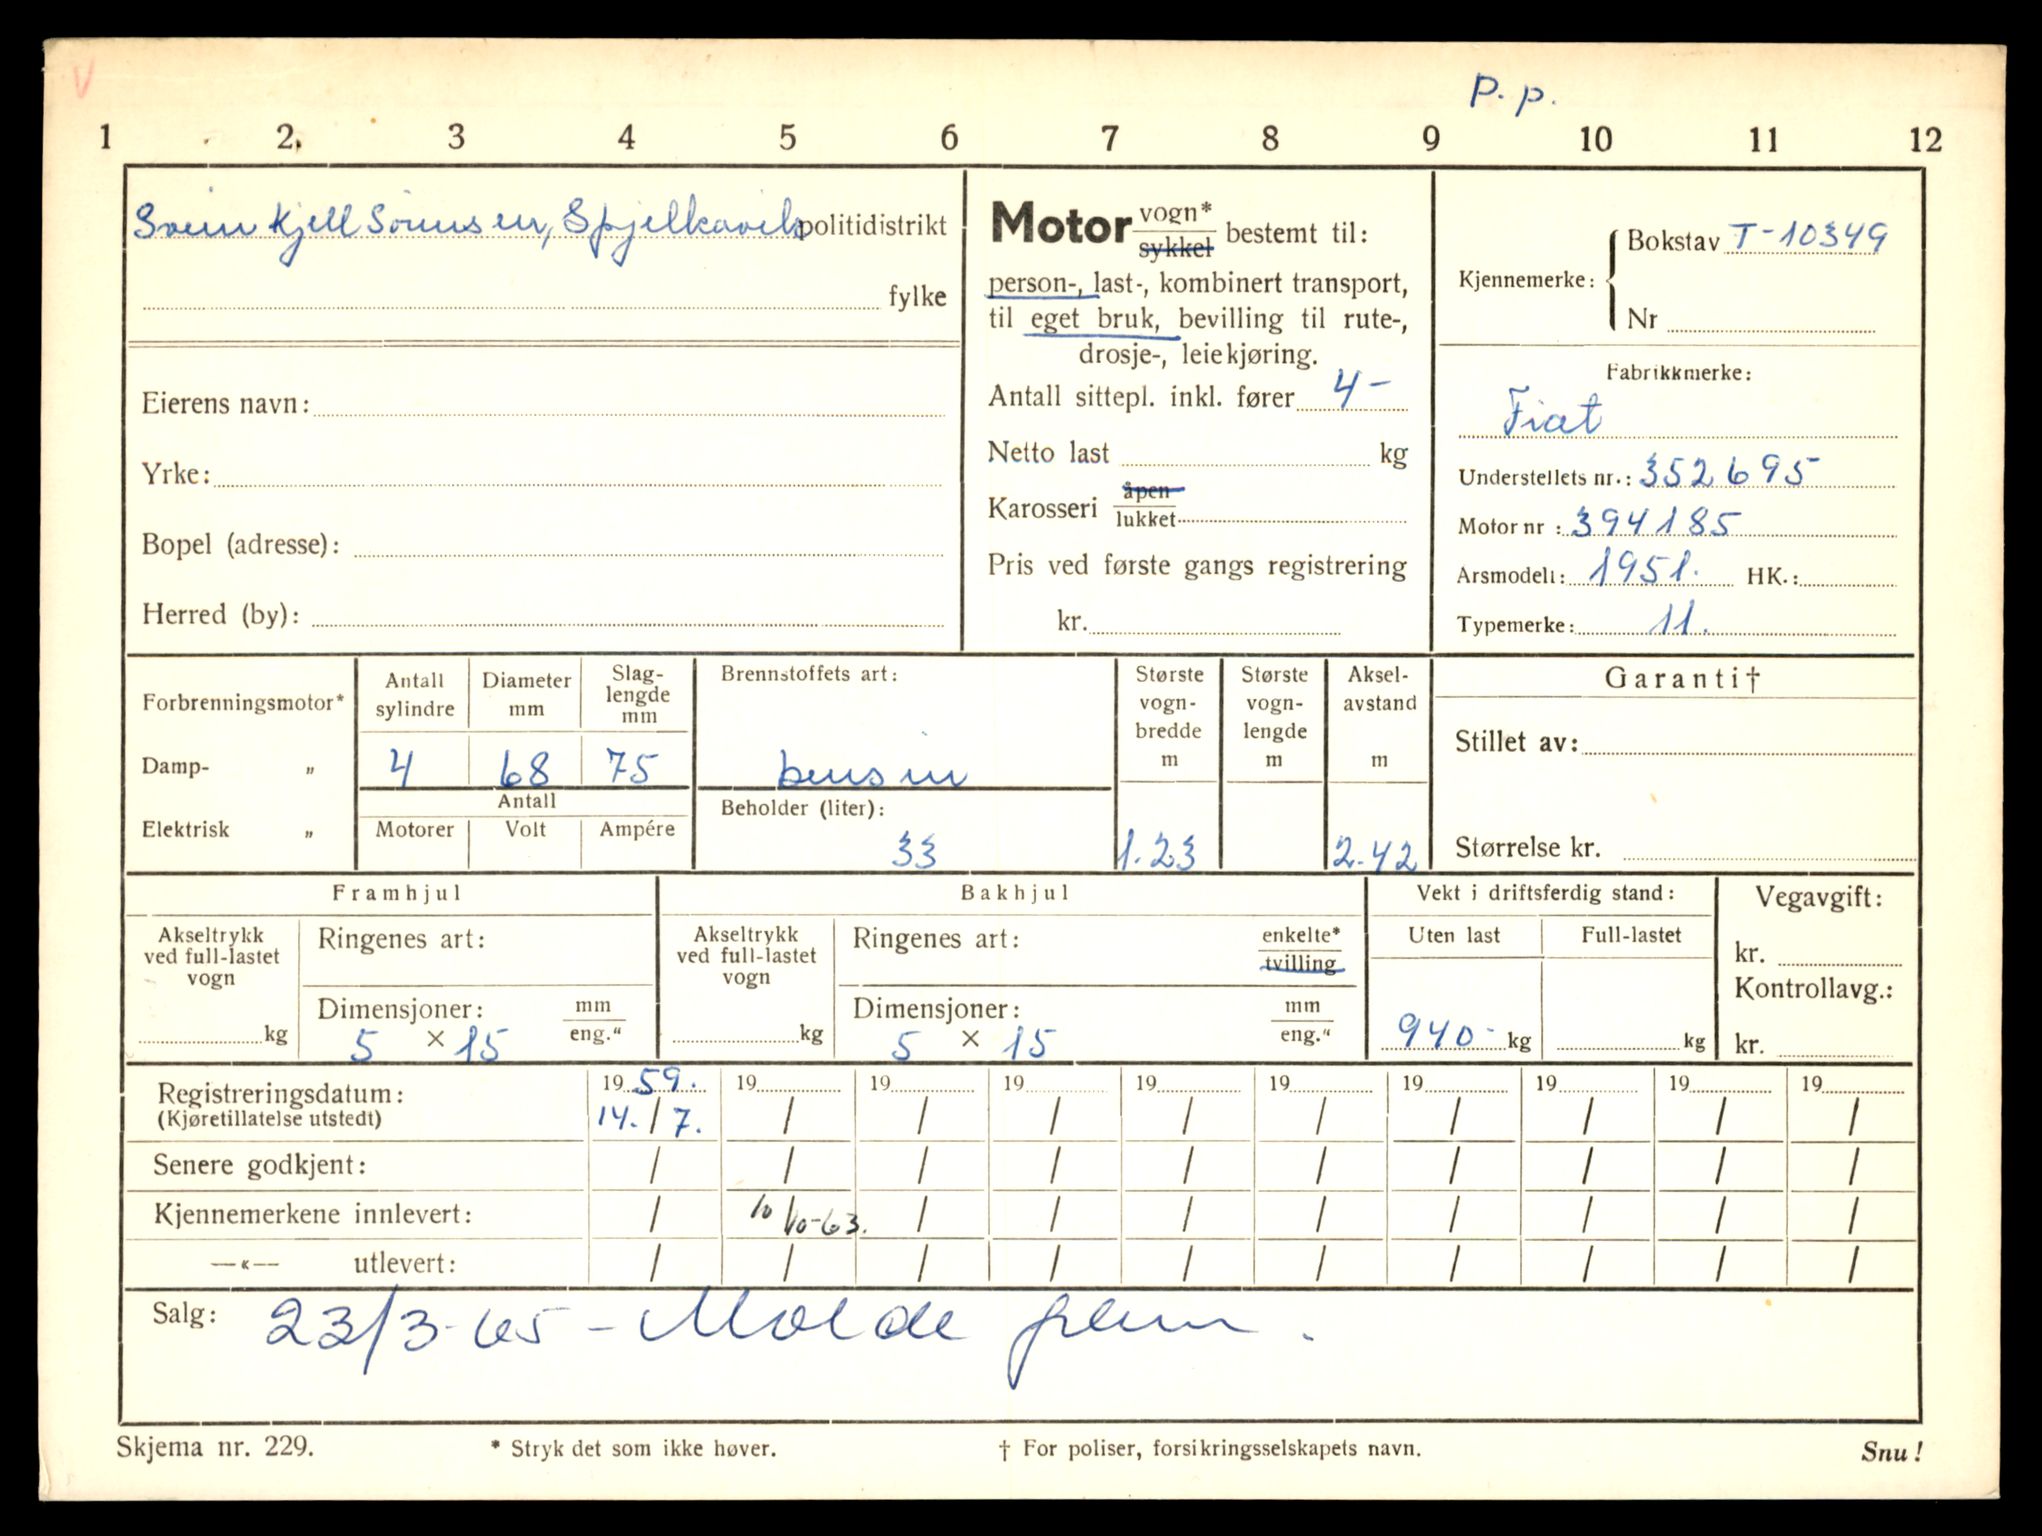 V
P. p.
1 2. 3 4 5 6 7 8 9 10 11 12
Svein Kjell Sörensen, Spjelkavik politidistrikt
fylke
Eierens navn:
Yrke:
Bopel (adresse):
Herred (by):
Motor vogn*
sykkel
bestemt til:
person-, last-, kombinert transport,
til eget bruk, bevilling til rute-,
drosje-, leiekjøring.
Antall sittepl. inkl. fører 4-
Netto last kg
Karosseri åpen
lukket
Pris ved første gangs registrering
kr.
Kjennemerke: Bokstav T-10349
Nr
Fabrikkmerke:
Fiat
Understellets nr.: 352695
Motor nr : 394185
Arsmodell: 1951. HK.:
Typemerke: 11.
Forbrenningsmotor*
Damp- „
Elektrisk „
Antall sylindre
Diameter mm
Slag-
lengde
mm
4 68 75
Antall
Motorer Volt Ampére
Brennstoffets art:
bensin
Beholder (liter):
33
Største
vogn-
bredde
m
1.23
Største
vogn-
lengde
m
Aksel-
avstand
m
2.42
Garanti†
Stillet av:
Størrelse kr.
Framhjul
Akseltrykk
ved full-lastet
vogn
kg
Ringenes art:
Dimensjoner: mm
eng.“
5 × 15
Bakhjul
Akseltrykk
ved full-lastet
vogn
kg
Ringenes art: enkelte*
tvilling
Dimensjoner: mm
eng.“
5 × 15
Vekt i driftsferdig stand:
Uten last Full-lastet
940- kg kg
Vegavgift:
kr.
Kontrollavg.:
kr.
Registreringsdatum: 19 59. 19 19 19 19 19 19 19 19 19
(Kjøretillatelse utstedt) 14. / 7. / / / / / / / / /
Senere godkjent: / / / / / / / / / /
Kjennemerkene innlevert: / 10/10-63. / / / / / / / /
—«— utlevert: / / / / / / / / / /
Salg: 23/3-65 - Molde pkm.
Skjema nr. 229. * Stryk det som ikke høver. † For poliser, forsikringsselskapets navn. Snu!